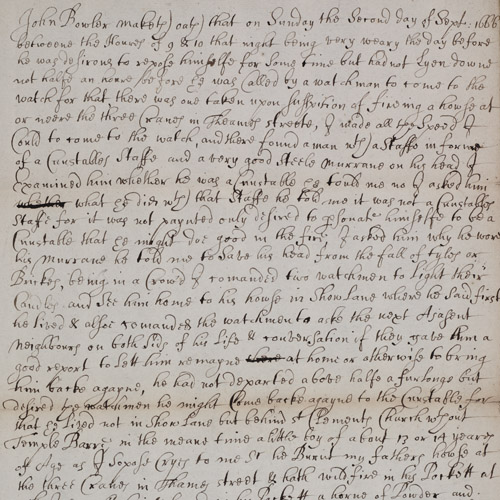 John Bowler maketh oath that on Sunday the Second day of Sept: 1666
betweene the Houres of 9 & 10 that night being very weary the day before
he was desirous to repose himselfe for some time but had not Lyen downe
not halfe an houre before he was Called by a watchman to come to the
watch for that there was one taken upon suspition of fireing a house at
or neere the three Cranes in Theames streete, I made all the Speed I
Could to come to the watch, and there found a man wth a Staffe in forme
of a Cunstables Staffe and a very good Steele Murrane on his head I
Examined him whether he was a Cunstable he tould me no I asked him
what he did wth that Staffe he told me it was not a Cunstables
Staffe for it was not paynted only desired to psonate himselfe to be a
Cunstable that he might doe good in the fire, I asked him why he wore
his Murrane he told me to save his head from the fall of tyles or
Brickes, being in a Crowd I comanded two watchmen to Light their
Candles and See him home to his house in Show Lane where he said first
he lived & allsoe comanded the watchmen to aske the next Ajasent
Neighbours on both sids of his Life & conversation if they gave him a
good report to Lett him remayne at home or otherwise to bring
him backe agayne, he had not departed above halfe a furlonge but
desired the watchmen he might Come backe agayne to the Cunstable for
that he Lived not in Show Lane but behind St Clements Church without
Temple Barr, in the meane time a little boy of about 13 or 14 yeares
of Age as I Sopose Cryes to me Sr he Burnt my fathers house at
the three Cranes in Thames street & hath wild fire in his Pockett at
Pockett a horne of Powder and